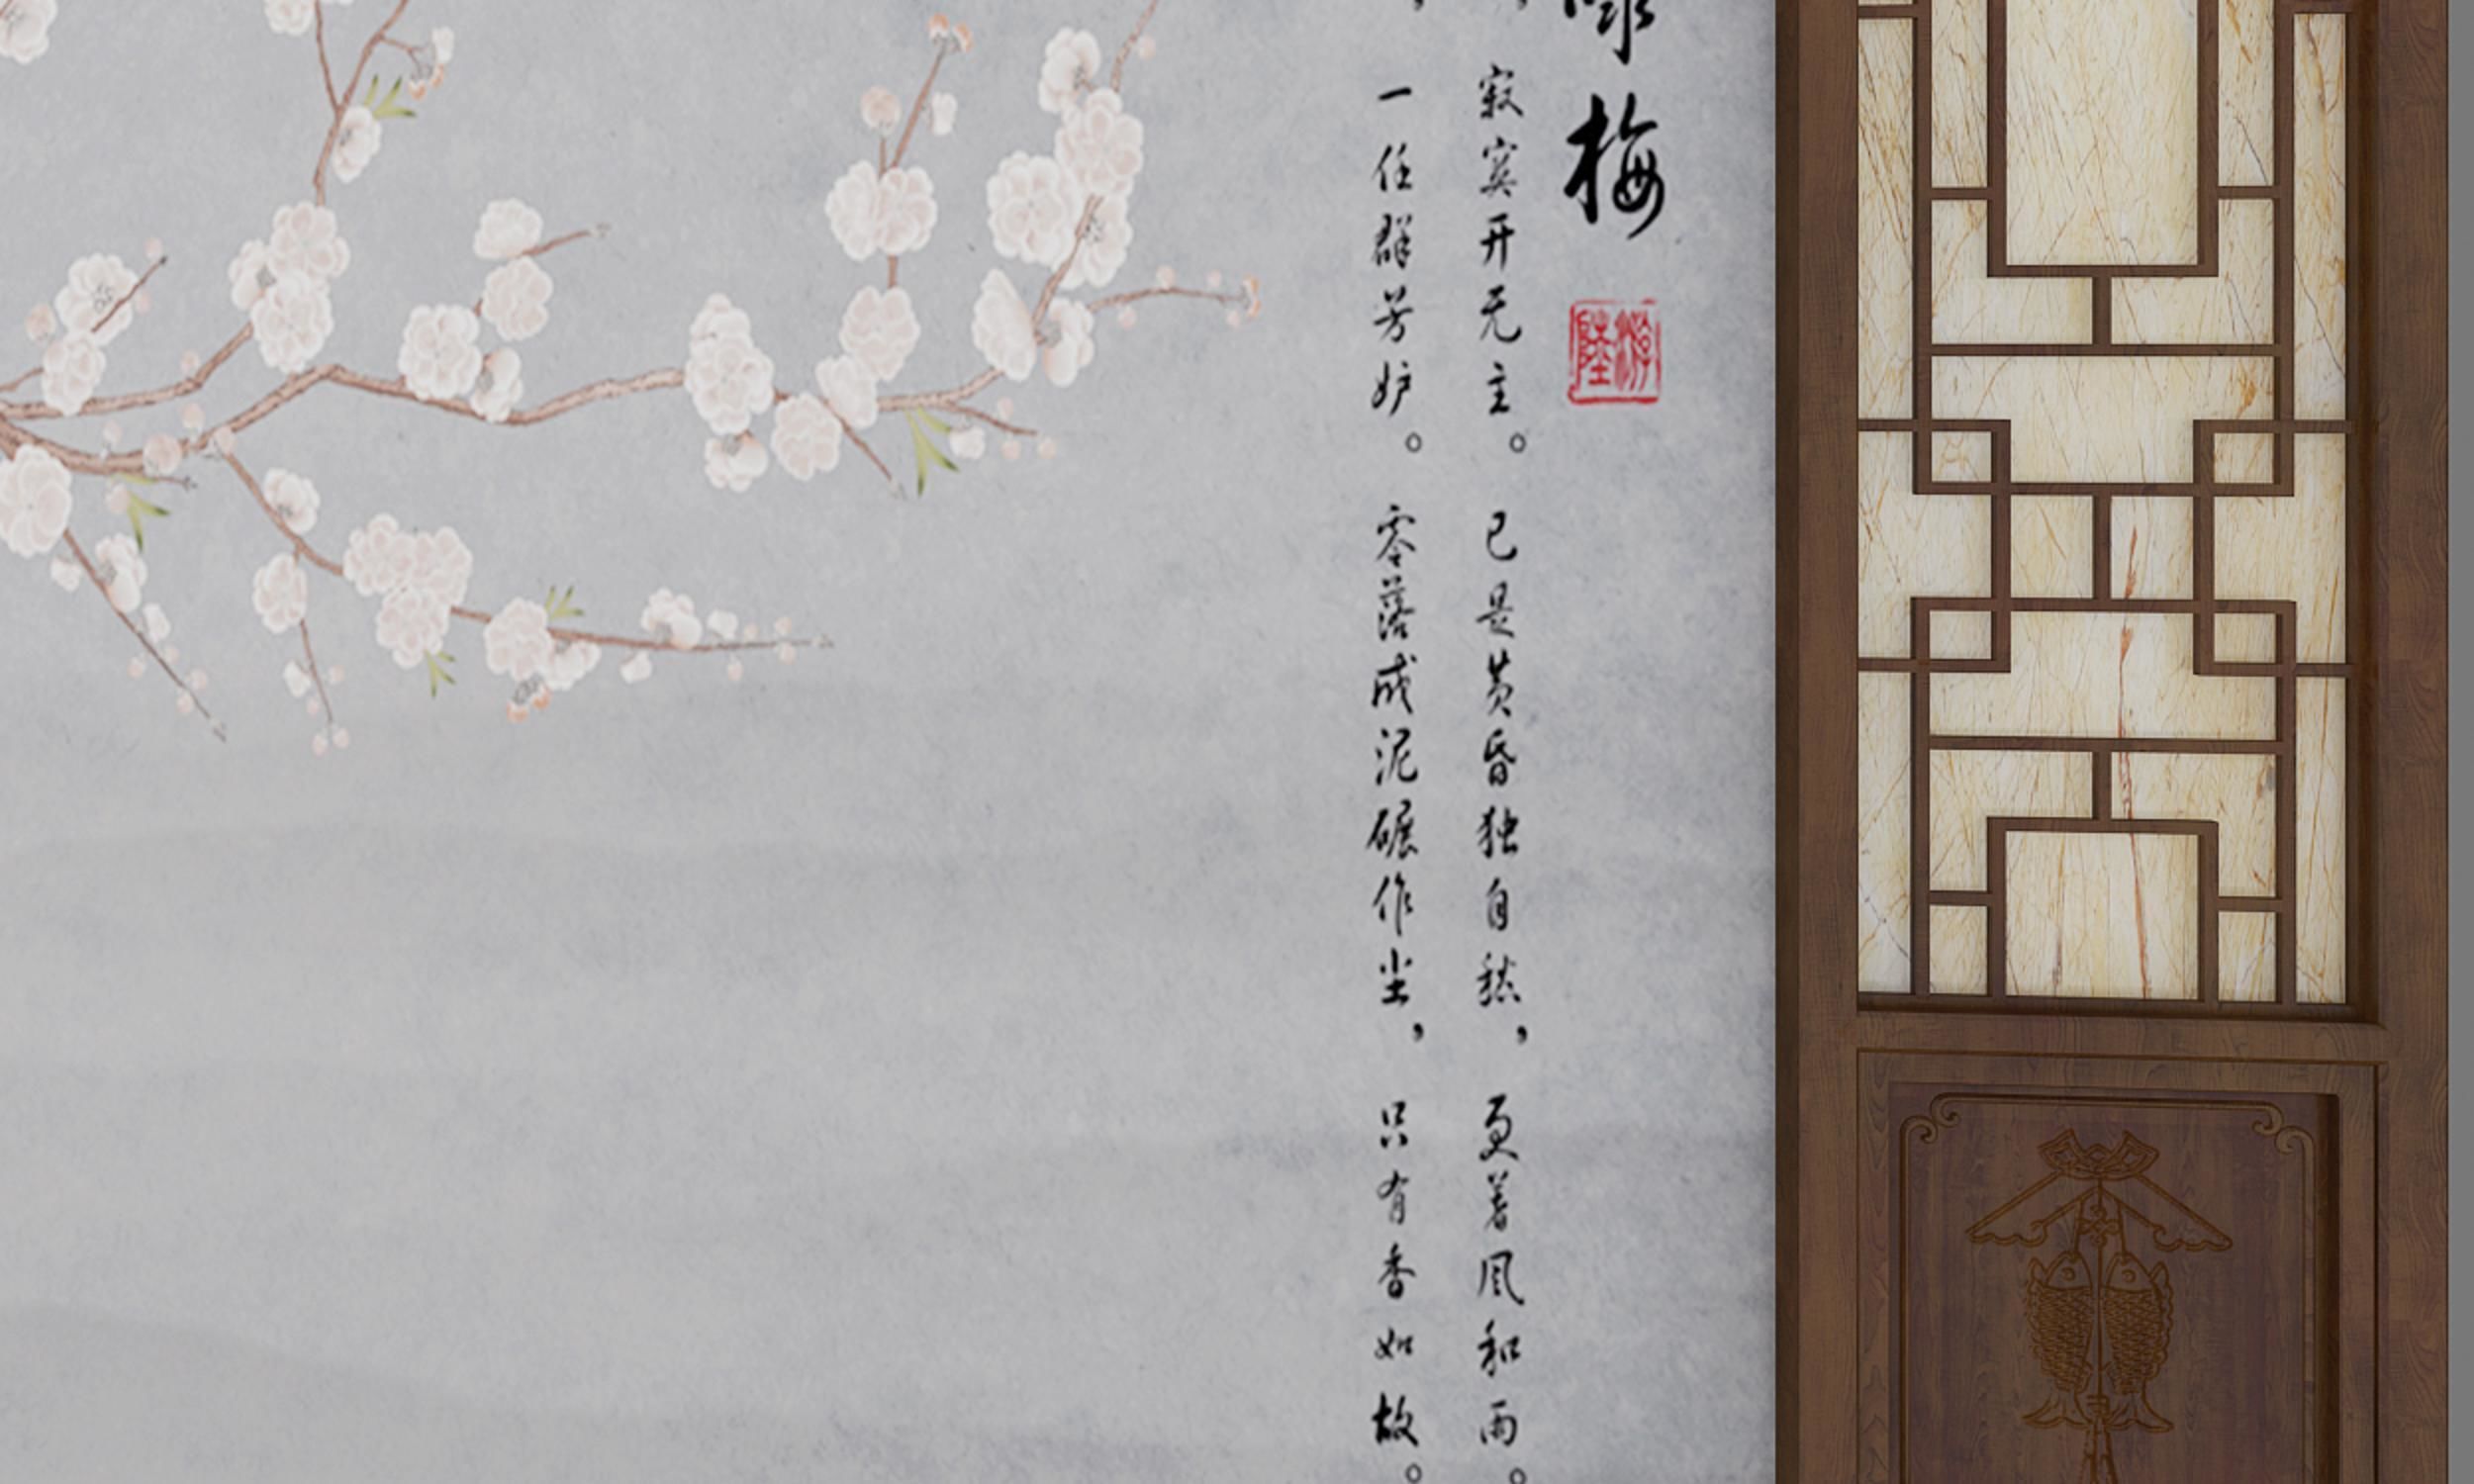 咏梅
陸游
，寂寞开无主。已是黄昏独自愁，更著风和雨。
，一任群芳妒。零落成泥碾作尘，只有香如故。